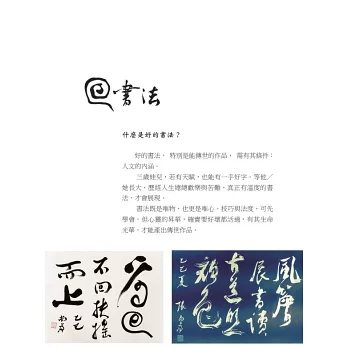 書法
什麼是好的書法？
好的書法，特別是能傳世的作品，還有其條件：
人文的內涵。
三歲娃兒，若有天賦，也能有一手好字。等他／
她長大，歷經人生總總歡樂與苦難，真正有溫度的書
法，才會展現。
書法既是唯物，也更是唯心。技巧與法度，可先
學會。但心靈的昇華，確實要好壞都活過，有其生命
光華，才能產出傳世作品。
不回扶搖
而上
風簷
展書讀
古道照
顏色